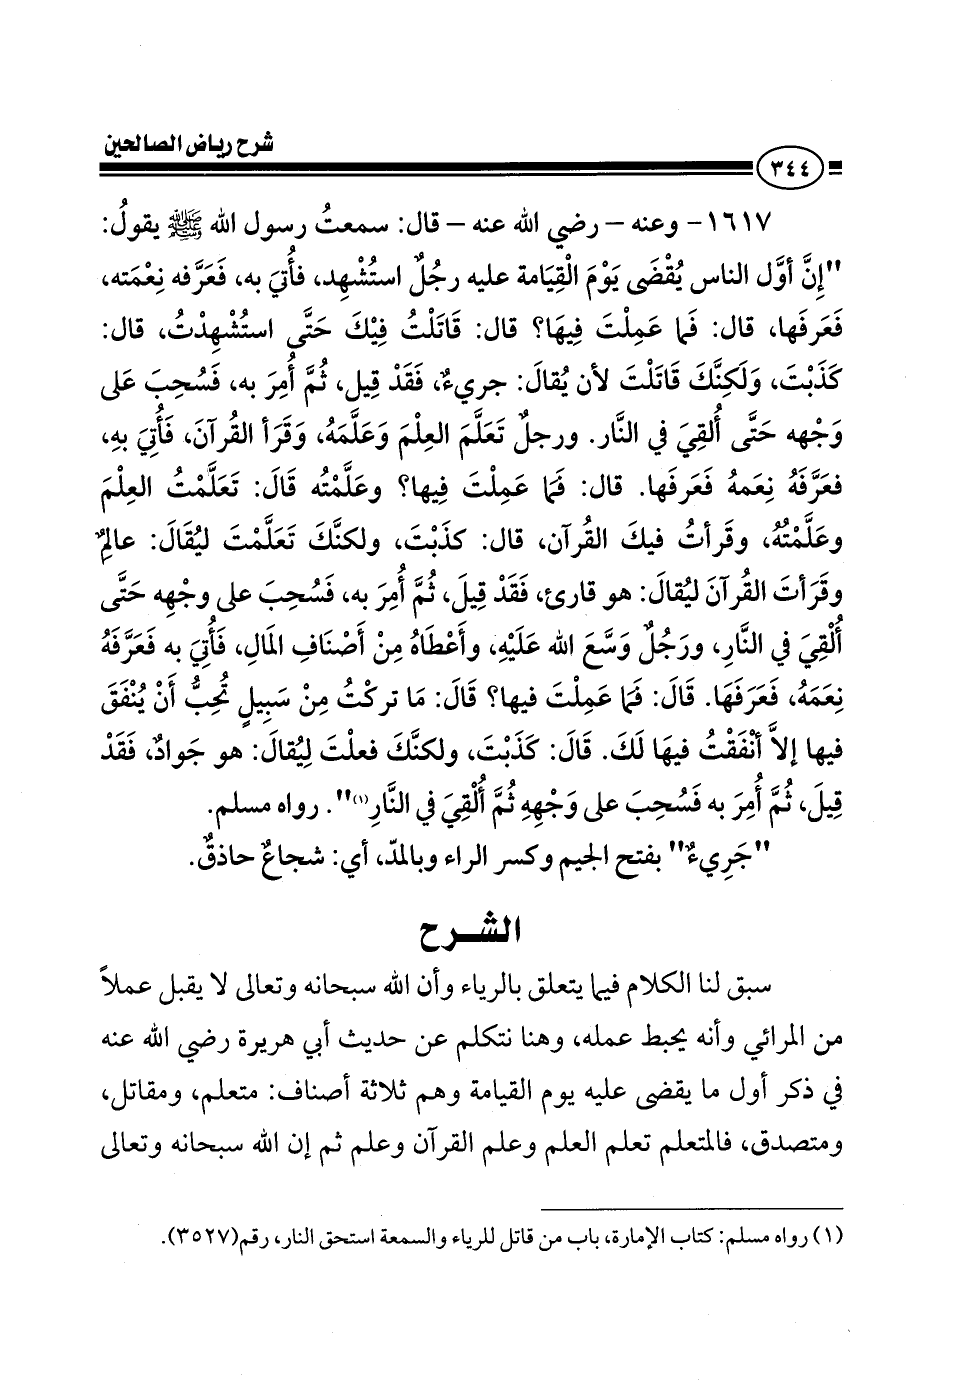 شرح رياض الصالحين
٣٤٤
١٦١٧- وعنه – رضي الله عنه – قال: سمعتُ رسول الله ﷺ يقولُ:
"إنَّ أوَّل الناس يُقْضَى يَوْمَ الْقِيَامة عليه رجُلٌ استُشْهِد، فأُتيَ به، فَعَرَّفه نِعْمَته،
فَعَرفَها، قال: فَما عَمِلْتَ فِيهَا؟ قال: قَاتَلْتُ فِيْكَ حَتَّى استُشْهِدْتُ، قال:
كَذَبْتَ، وَلَكِنَّكَ قَاتَلْتَ لأن يُقالَ: جريءٌ، فَقَدْ قِيل، ثُمَّ أُمِرَ به، فَسُحِبَ عَلى
وَجْهه حَتَّى أُلقِيَ في النَّار. ورجلٌ تَعَلَّمَ العِلْمَ وَعَلَّمَهُ، وَقَرَأ القُرآنَ، فَأُتِيَ بِهِ،
فعَرَّفَهُ نِعَمهُ فَعَرفَها. قال: فَما عَمِلْتَ فِيها؟ وعلَّمْتُه قَالَ: تَعَلَّمْتُ العِلْمَ
وعلَّمْتُهُ، وقَرأتُ فيكَ القُرآن، قال: كذَبْتَ، ولكنَّكَ تَعَلَّمْتَ ليُقَالَ: عالِمٌ
وقَرَأتَ القُرآنَ ليُقالَ: هو قارئ، فَقَدْ قِيلَ، ثُمَّ أُمِرَ به، فَسُحِبَ على وجْهِه حَتَّى
أُلْقِيَ في النَّارِ، ورَجُلٌ وَسَّعَ الله عَلَيْهِ، وأَعْطَاهُ مِنْ أَصْنَافِ المَالِ، فَأُتيَ به فَعَرَّفَهُ
نِعَمَهُ، فَعَرَفَهَا. قَالَ: فَما عَمِلْتَ فيها؟ قَالَ: مَا تركْتُ مِنْ سَبِيلٍ تُحِبُّ أَنْ يُنْفَقَ
فيها إلاَّ أنْفَقْتُ فيهَا لَكَ. قَالَ: كَذَبْتَ، ولكنَّكَ فعلْتَ لِيُقالَ: هو جَوادٌ، فَقَدْ
قِيلَ، ثُمَّ أُمِرَ به فَسُحِبَ على وَجْهِهِ ثُمَّ أُلْقِيَ في النَّارِ(١)". رواه مسلم.
"جَرِيءٌ" بفتح الجيم وكسر الراء وبالمدّ، أي: شجاعٌ حاذقٌ.
الشـرح
سبق لنا الكلام فيما يتعلق بالرياء وأن الله سبحانه وتعالى لا يقبل عملاً
من المرائي وأنه يحبط عمله، وهنا نتكلم عن حديث أبي هريرة رضي الله عنه
في ذكر أول ما يقضى عليه يوم القيامة وهم ثلاثة أصناف: متعلم، ومقاتل،
ومتصدق، فالمتعلم تعلم العلم وعلم القرآن وعلم ثم إن الله سبحانه وتعالى
(١) رواه مسلم: كتاب الإمارة، باب من قاتل للرياء والسمعة استحق النار، رقم(٣٥٢٧).